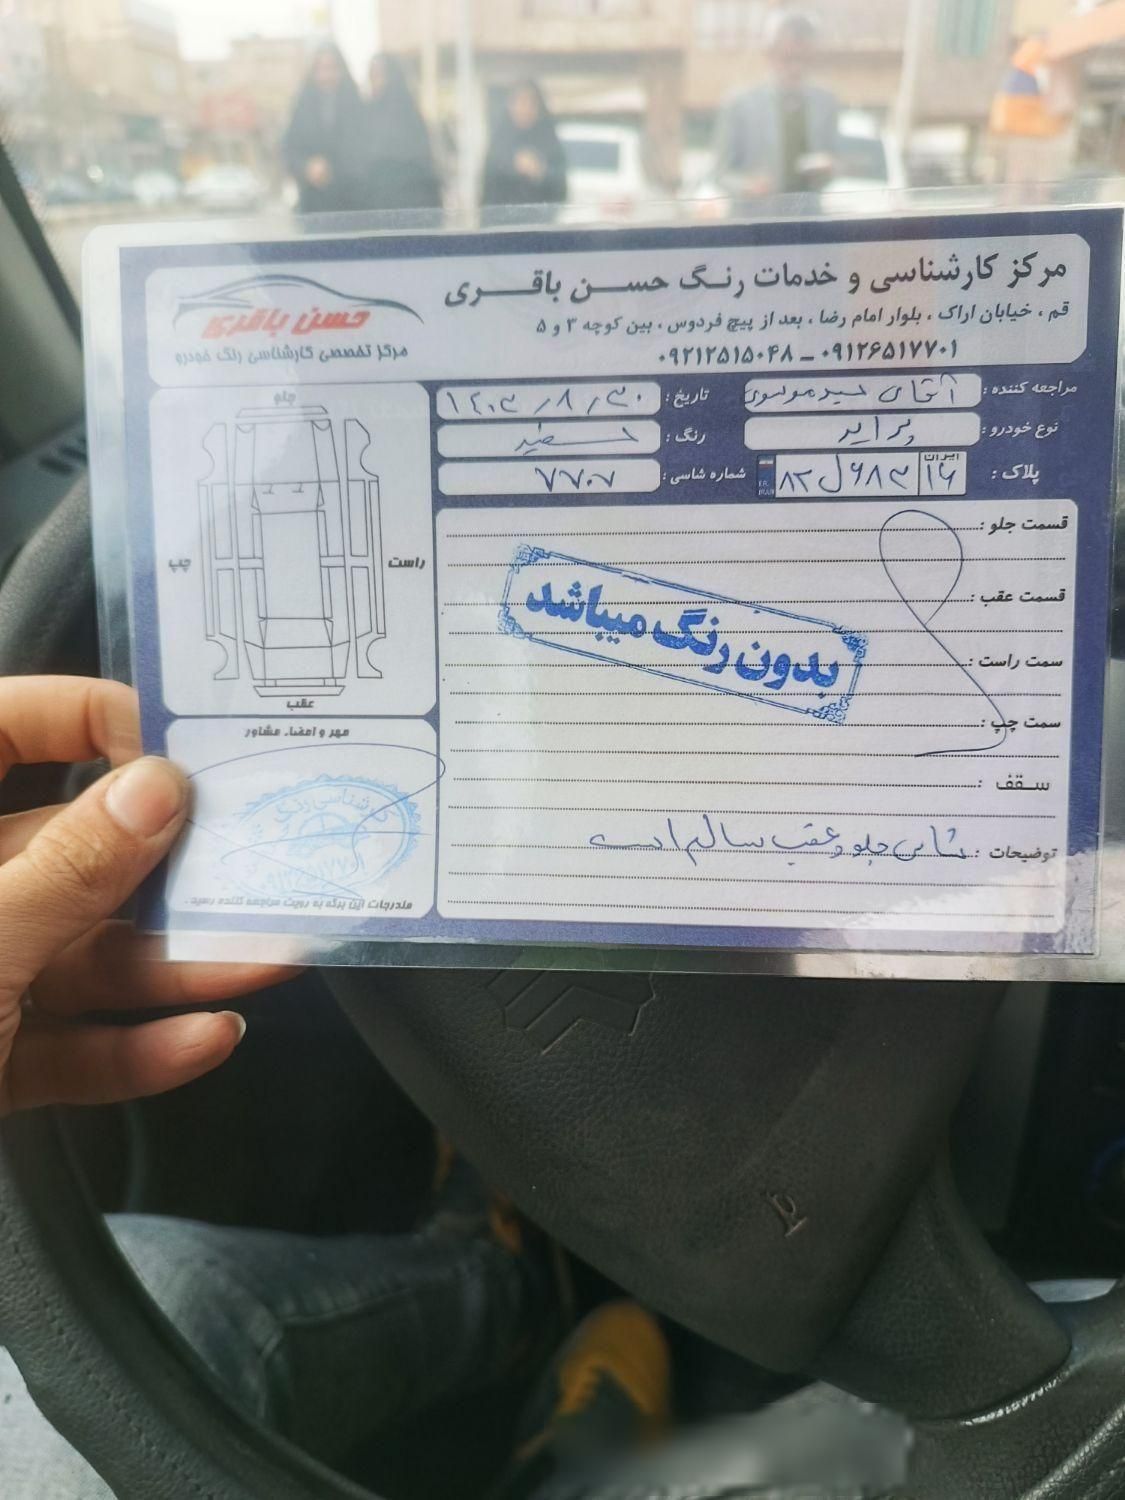 مرکز کارشناسی و خدمات رنگ حسن باقری
قم ، خیابان اراک ، بلوار امام رضا ، بعد از پیچ فردوس ، بین کوچه ۳ و ۵
۰۹۱۲۶۵۱۷۷۰۱ ــ ۰۹۲۱۲۵۱۵۰۴۸
حسن باقری
مرکز تخصصی کارشناسی رنگ خودرو
مراجعه کننده : آقای سید موسوی
تاریخ : ۱۴۰۳/۸/۳۰
نوع خودرو : پراید
رنگ : سفید
پلاک : ایران ۱۶ ۶۸۳ ل ۸۲
شماره شاسی : ۷۷۰۷
جلو
چپ
راست
عقب
قسمت جلو :
قسمت عقب :
سمت راست :
سمت چپ :
سقف :
بدون رنگ میباشد
توضیحات : شاسی جلو و عقب سالم است
مهر و امضاء مشاور
کارشناسی رنگ
مندرجات این برگه به رویت مراجعه کننده رسید .